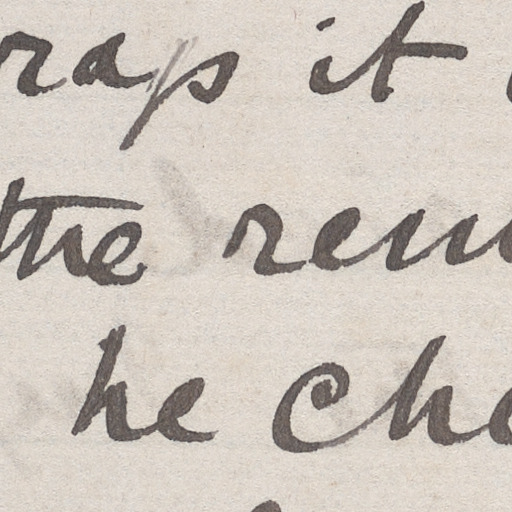 raps it
the ren
he cho